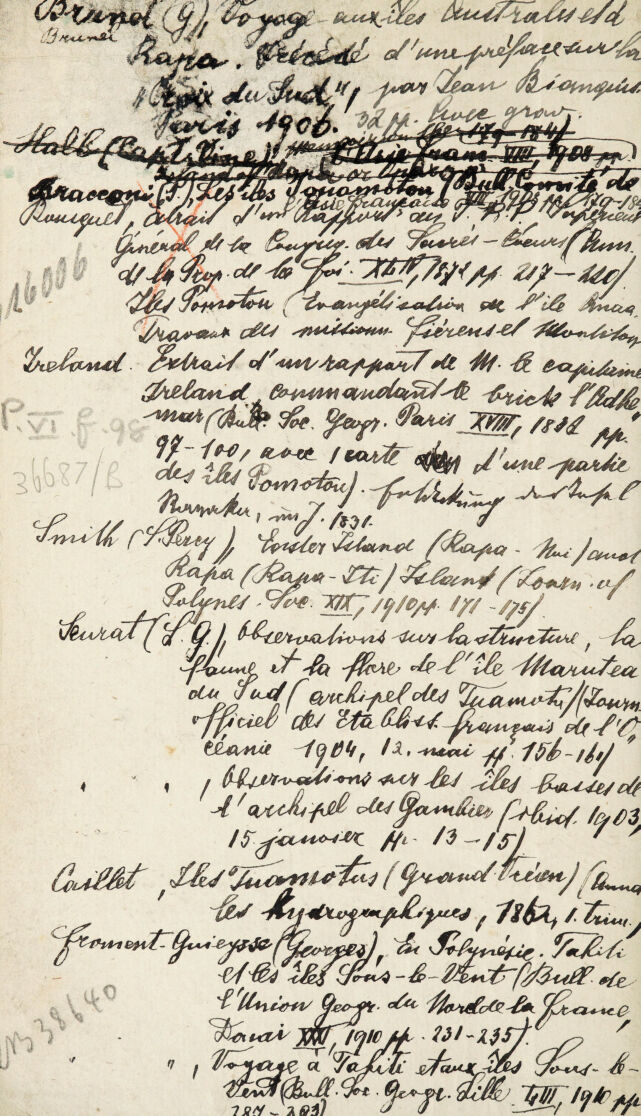 Brunel (G), Voyage aux îles Australes et à
Brunel
Rapa. Précédé d'une préface sur la
"Croix du Sud", par Jean Bianquis
Paris 1906. 32 pp. Avec grav.
179-184)
Hall (Capt. L'Asie franç. VIII, 1908 pp.
Bracconi (P.), Les îles Touamotou (Bull. Comité de
l'Asie française
Rouquet, extrait d'un Rapport du T. R. P. Supérieur
Général de la Congreg. des Sacrés-Coeurs (Ann.
de la Prop. de la foi. XLIV, 1872 pp. 217-220)
26006
Iles Pomotou (Evangélisation de l'île Anaa.
Travaux des missionn. fiérens et Montiton
Ireland. Extrait d'un rapport de M. le capitaine
Ireland commandant le brick l'Adhe
mar (Bull. Soc. Geogr. Paris XVIII, 1832 pp.
P. VI. f. 98
97-100, avec 1 carte d'une partie
36687/B
des îles Pomotou). Entdeckung der Insel
im J. 1831.
Smith (S. Percy), Easter Island (Rapa-Nui) and
Rapa (Rapa-Iti) Island (Journ. of
Polynes. Soc. XIX, 1910 pp. 171-175)
Seurat (L. G.), Observations sur la structure, la
faune et la flore de l'île Marutea
du Sud (archipel des Tuamotu) (Journ.
officiel des Etabliss. français de l'O
céanie 1904, 12. mai pp. 156-161)
" " , Observations sur les îles basses de
l'archipel des Gambier (ibid. 1903,
15 janvier pp. 13-15)
Caillet, Iles Tuamotus (Grand Océan) (Anna
les hydrographiques, 1862, 1. trim.,
froment-Guieysse (Georges), En Polynésie. Tahiti
et les îles Sous-le-Vent (Bull. de
l'Union Geogr. du Nord de la france,
N 38640
Douai XXXI, 1910 pp. 231-235).
" " , Voyage à Tahiti et aux îles Sous-le-
Vent (Bull. Soc. Geogr. Lille LIII, 1910 pp
287-289)